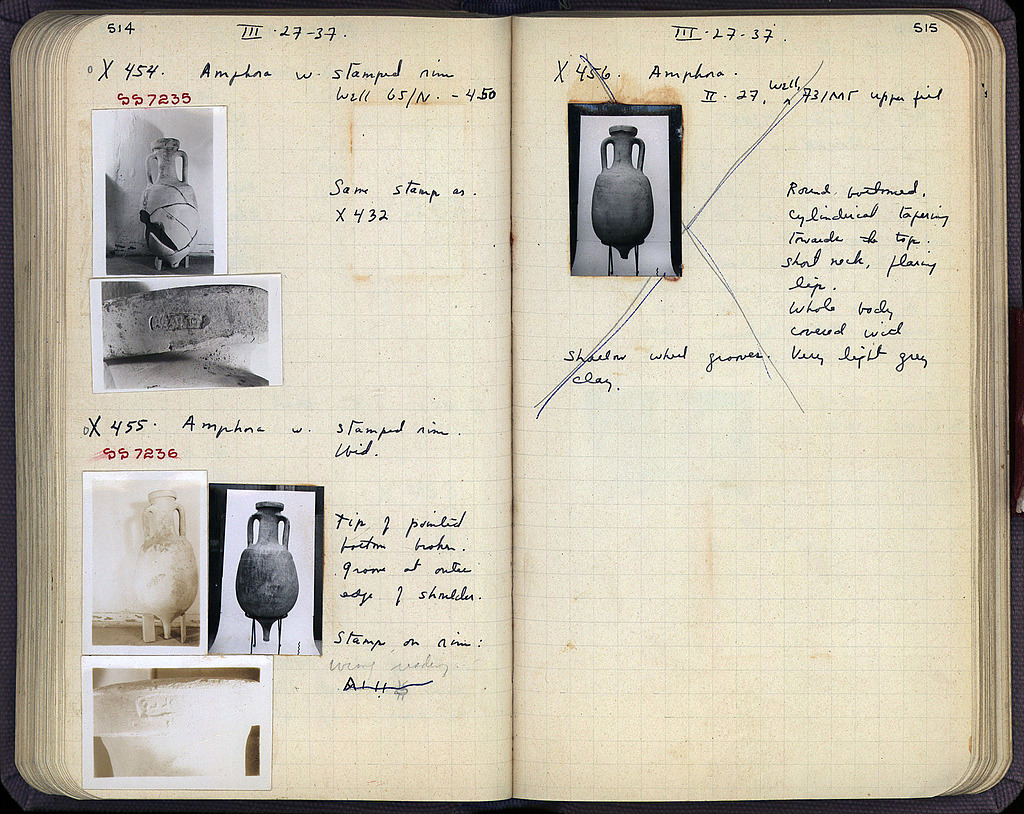 514
III · 27 - 37.
X 454. Amphora w. stamped rim
Well 65/N. - 4.50
SS7235
Same stamp as.
X 432
X 455. Amphora w. stamped rim.
Ibid.
SS7236
Tip of pointed
bottom broken.
Groove at outer
edge of shoulder.
Stamp on rim:
wrong reading
515
III · 27 - 37.
X 456. Amphora.
II · 27, well 73/MΓ upper fill
Round bottomed.
Cylindrical tapering
towards the top.
Short neck, flaring
lip.
Whole body
covered with
shallow wheel grooves. Very light grey
clay.